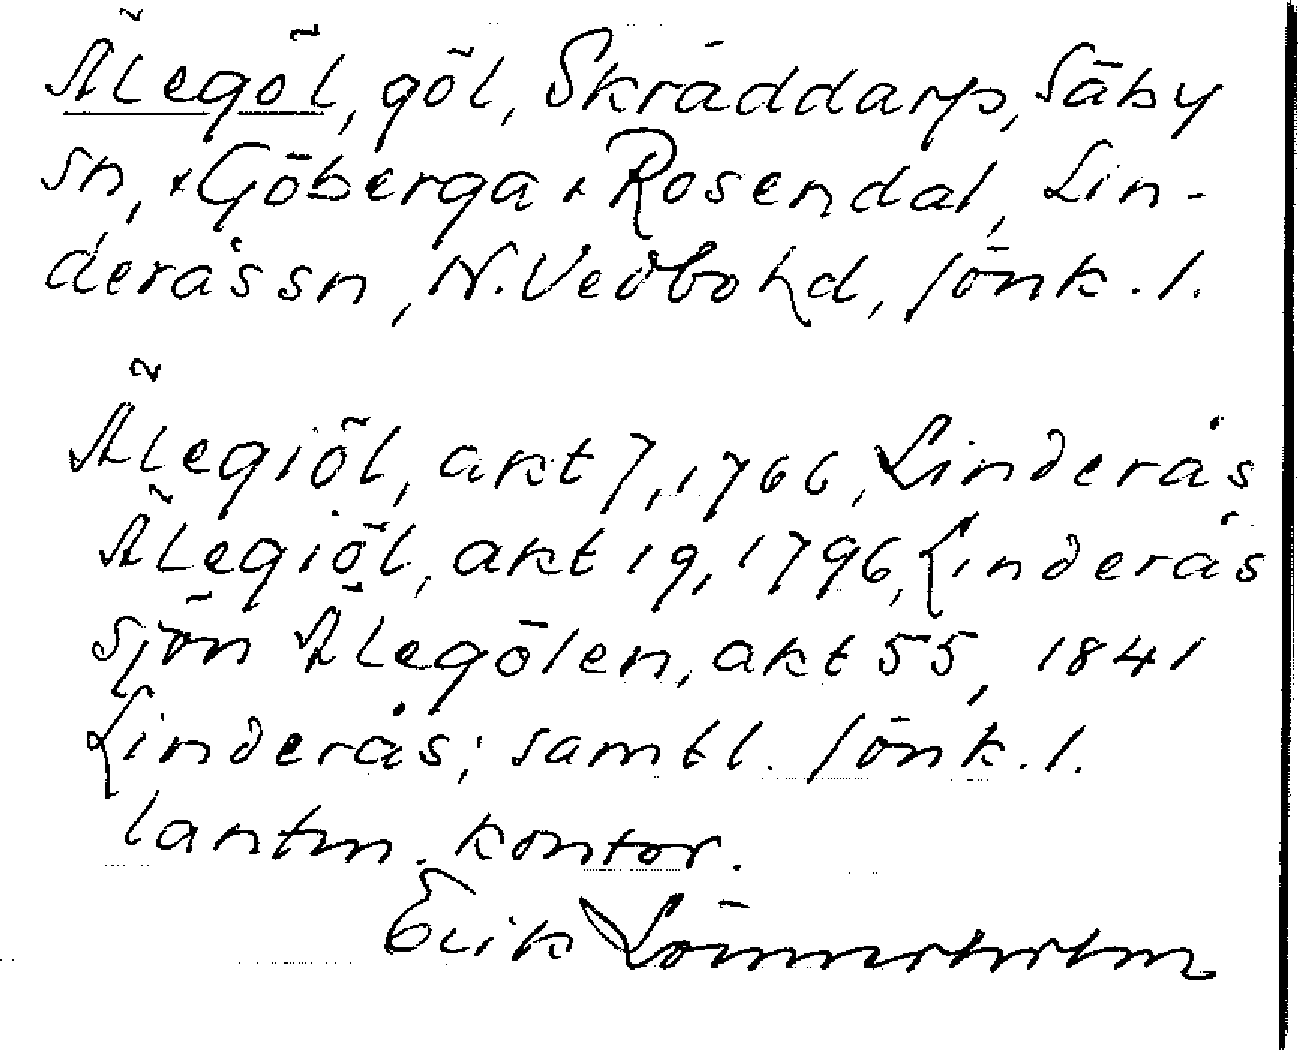 Älegöl, göl, Skräddarp, Säby
sn, + Göberga + Rosendal, Lin-
derås sn, N. Vedbo hd, Jönk. l.
Älegiöl, akt 7, 1766, Linderås
Älegiöl, akt 19, 1796, Linderås
sjön Älegölen, akt 55, 1841
Linderås; samtl. Jönk. l.
lantm. kontor.
Erik Lönnerholm